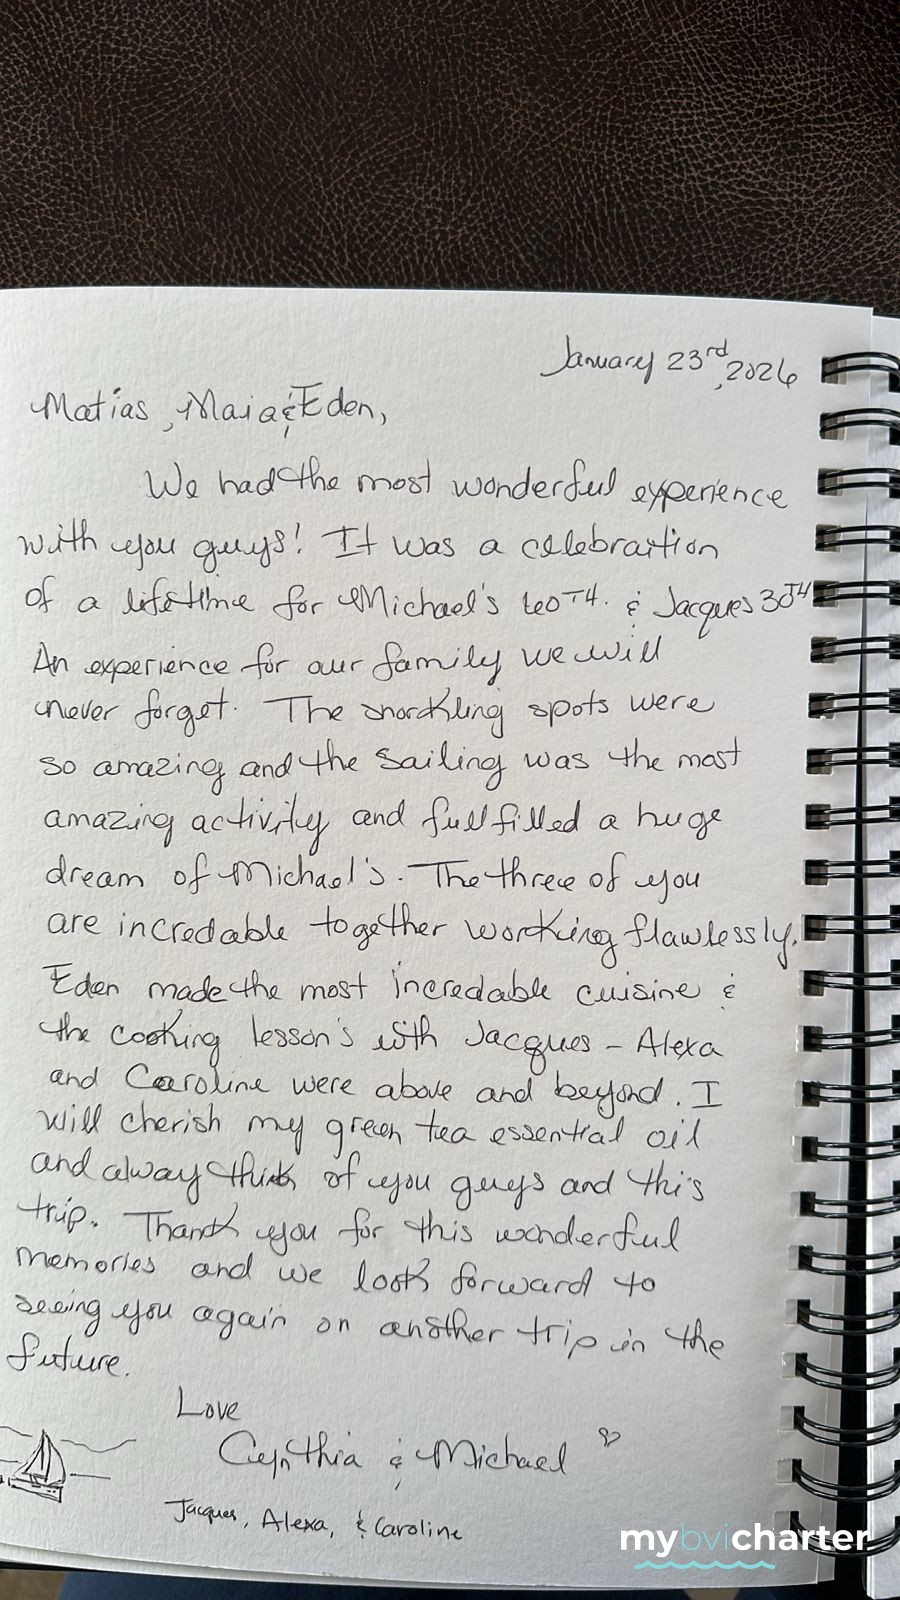 January 23rd, 2026
Matias, Maia & Eden,
We had the most wonderful experience
with you guys! It was a celebraition
of a lifetime for Michael's 60TH. & Jacques 30TH
An experience for our family we will
never forget. The snorkling spots were
so amazing and the sailing was the most
amazing activity and fullfilled a huge
dream of Michael's. The three of you
are incredable together working flawlessly.
Eden made the most incredable cuisine &
the cooking lesson's with Jacques - Alexa
and Caroline were above and beyond. I
will cherish my green tea essential oil
and alway think of you guys and this
trip. Thank you for this wonderful
memories and we look forward to
seeing you again on another trip in the
future.
Love
Cynthia & Michael
Jacques, Alexa, & Caroline
mybvicharter